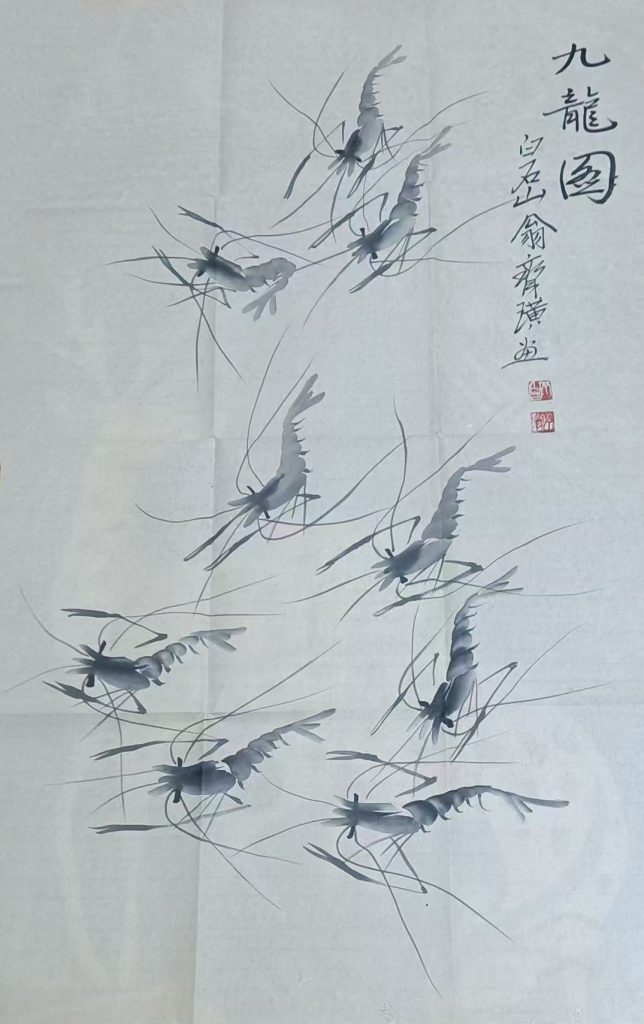 九龍圖
白石山翁齊璜畫